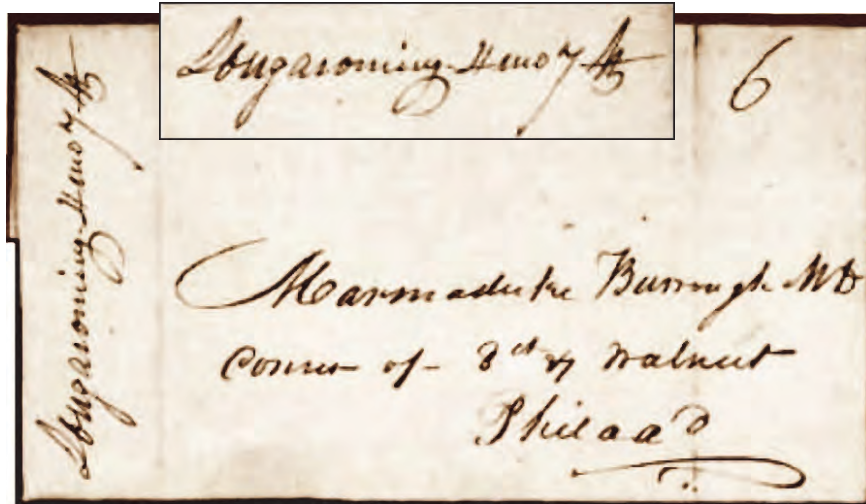 Longacoming 4 mo 7th
6
Longacoming 4 mo 7th
Marmaduke Burrough MD
Corner of 8th & Walnut
Philaad